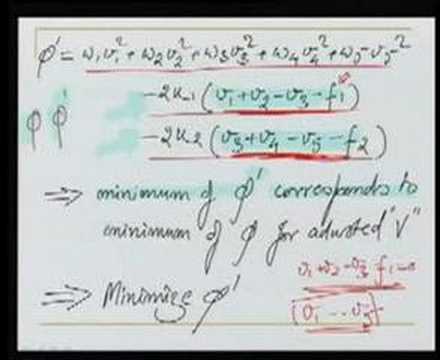 φ' = ω₁v₁² + ω₂v₂² + ω₃v₃² + ω₄v₄² + ω₅v₅²
-2k₁ (v₁ + v₂ - v₃ - f₁)
-2k₂ (v₃ + v₄ - v₅ - f₂)
φ φ'
⇒ minimum of φ' corresponds to
minimum of φ for adusted "v"
v₁ + v₂ - v₃ f₁ = 0
⇒ Minimize φ'
(v₁ ... v₅)